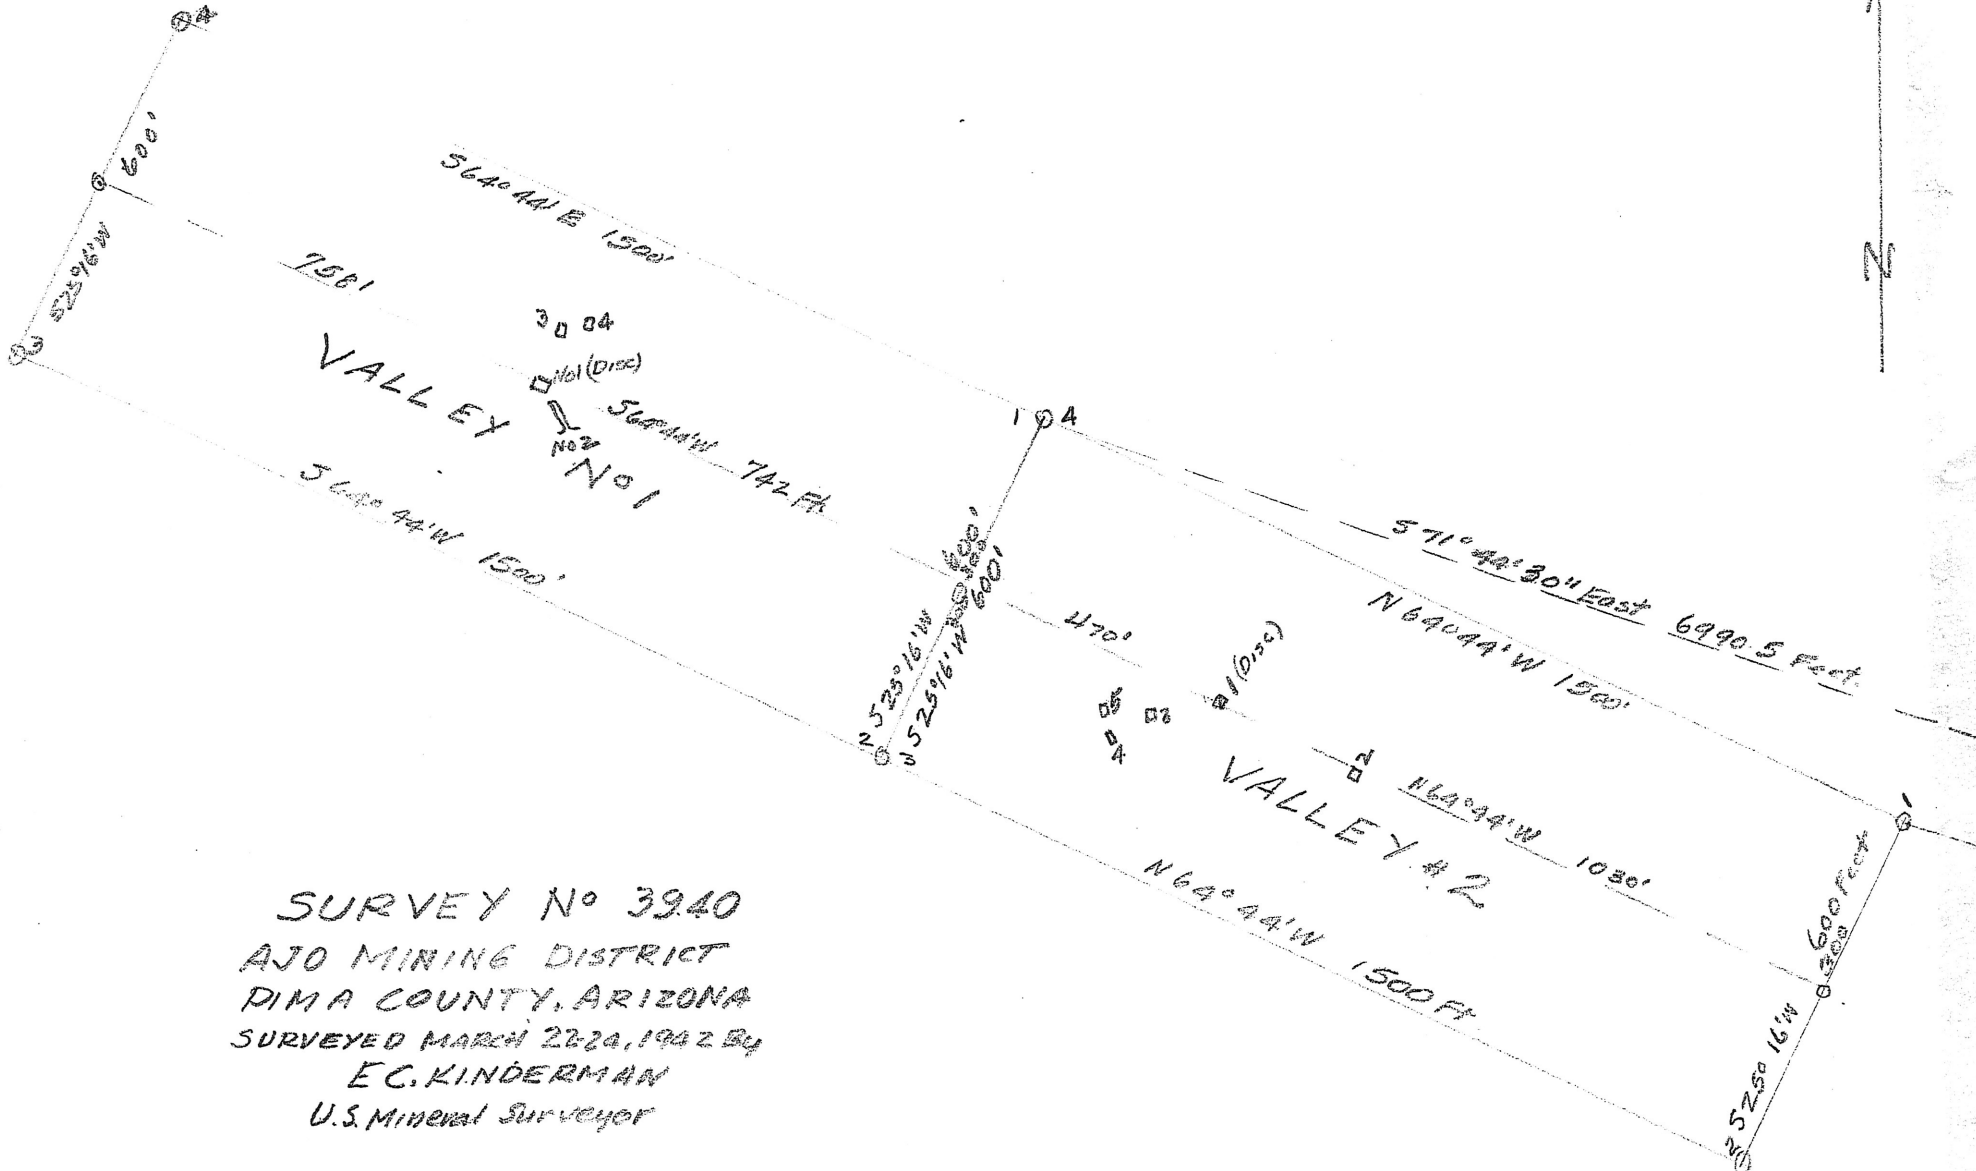 4
600'
S25°16'W
3
S64°44'E 1500'
758'
3 4
No1 (Disc)
No2
VALLEY No 1
S64°44'W 742 Ft.
S64°44'W 1500'
1 4
600'
300
600'
S25°16'W
S25°16'W
2 3
N
S71°44'30" East 6990.5 Feet.
N64°44'W 1500'
470'
1 (Disc)
4
2
VALLEY #2
N64°44'W 1030'
N64°44'W 1500 Ft
1
600 Feet
300
S25° 16'W
2
SURVEY No 3940
AJO MINING DISTRICT
PIMA COUNTY, ARIZONA
SURVEYED MARCH 22-24, 1942 By
E.C. KINDERMAN
U.S. Mineral Surveyor